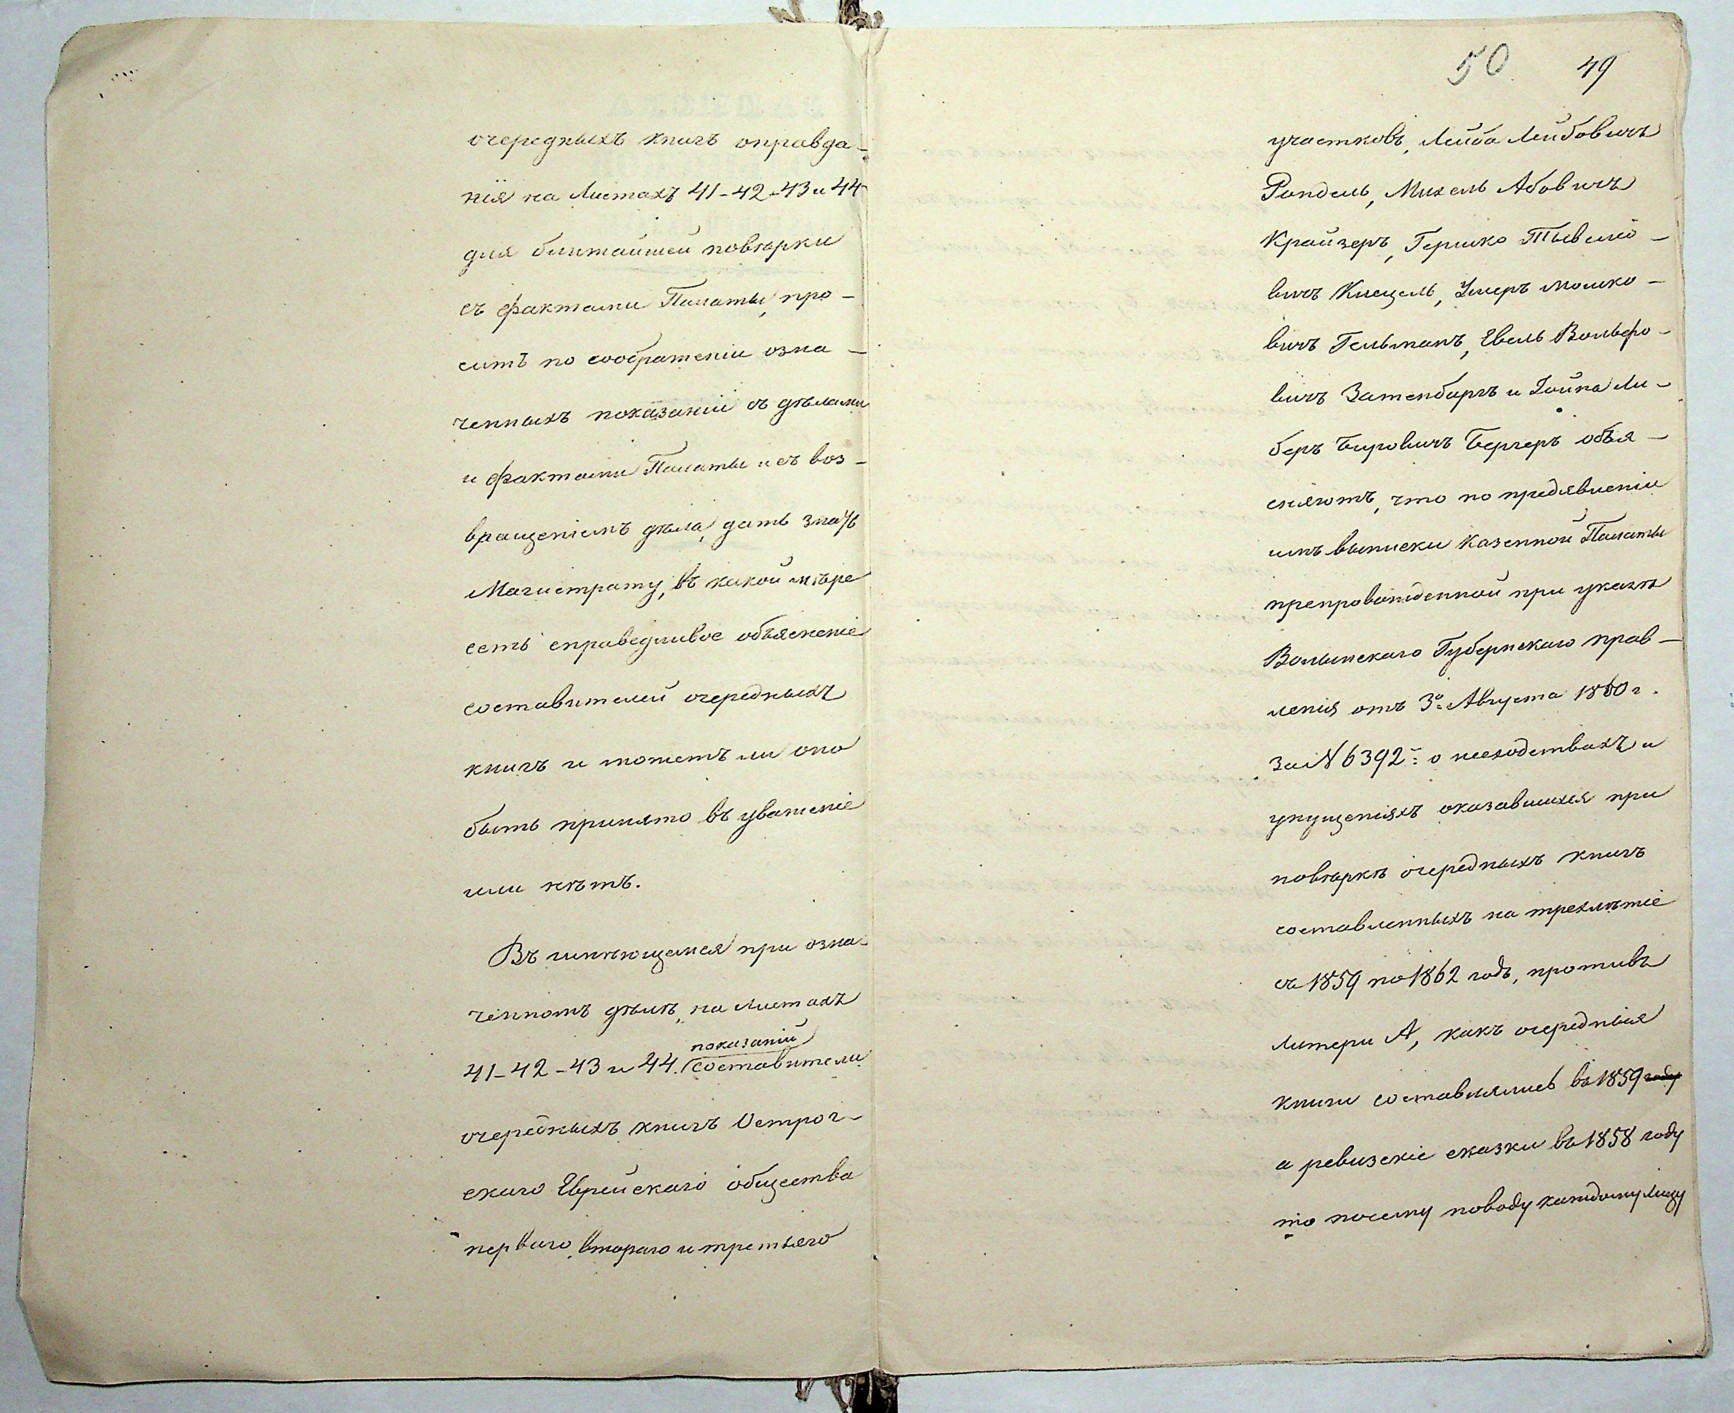 очередныхъ книгъ оправда-
нія на листахъ 41-42-43 и 44
для ближайшей повѣрки
съ фактами Палаты, про-
ситъ по соображеніи озна-
ченныхъ показаній съ дѣлами
и фактами Палаты и съ воз-
вращеніемъ дѣла, дать знать
Магистрату, въ какой мѣре
есть справедливое объясненіе
составителей очередныхъ
книгъ и можетъ ли оно
быть принято въ уваженіе
или нѣтъ.
Въ имѣющемся при озна-
ченномъ дѣлѣ, на листахъ
показаній
41-42-43 и 44. составители
очередныхъ книгъ Острог-
скаго Еврейскаго общества
перваго, втораго и третьяго
50 49
участковъ, Лейба Лейбовичъ
Рондель, Михель Абовичъ
Крайзеръ, Гершко Тывеліо-
вичъ Кисцель, Умеръ Мошко-
вичъ Гельманъ, Евель Вольфо-
вичъ Затенбаргъ и Хоина Ли-
беръ Беровичъ Бергеръ объя-
сняютъ, что по предявленіи
имъ выписки Казенной Палаты
препровожденной при указѣ
Волынскаго Губернскаго прав-
ленія отъ 3го Августа 1860 г.
за N 6392: о несходствахъ и
упущеніяхъ оказавшихся при
повѣркѣ очередныхъ книгъ
составленныхъ на трехлѣтіе
съ 1859 по 1862 годъ, противъ
литери А, какъ очередныя
книги составлялись въ 1859 году
а ревизскіе сказки въ 1858 году
то посему поводу каждому лицу